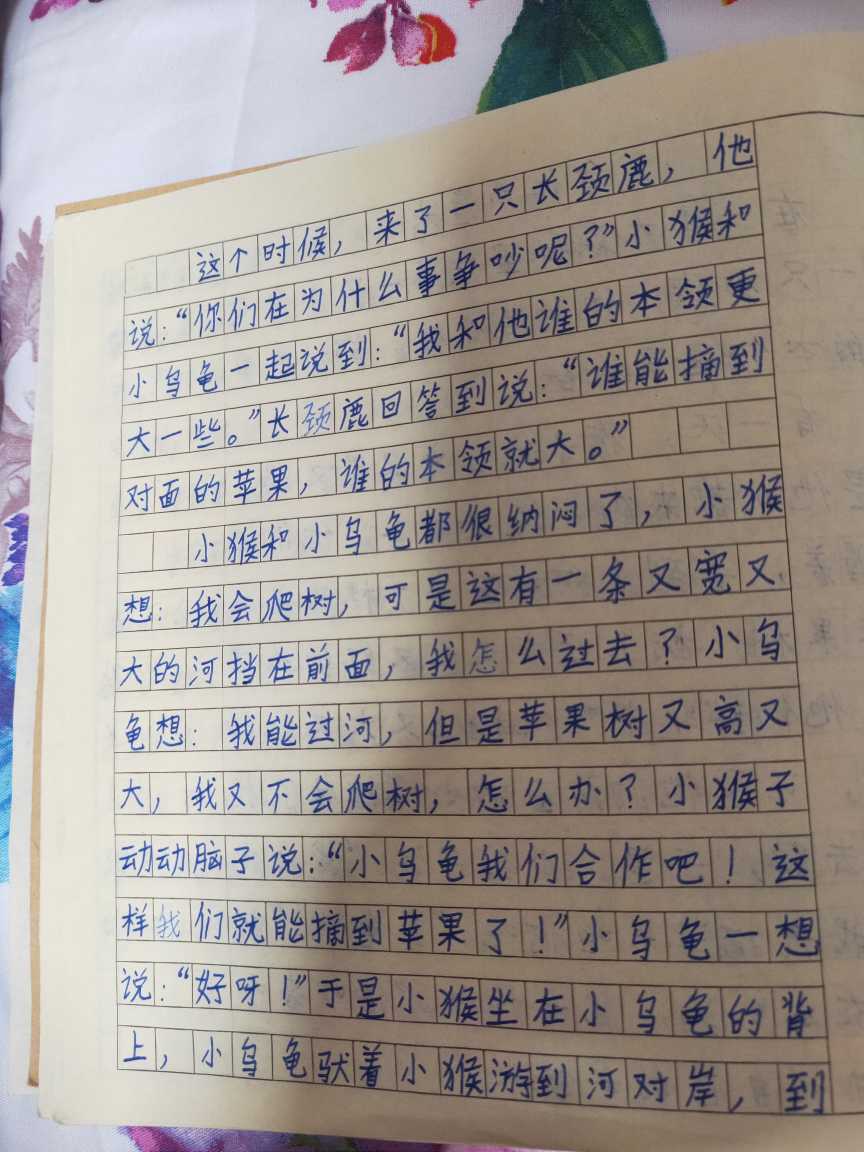 这个时候，来了一只长颈鹿，他
说：“你们在为什么事争吵呢？”小猴和
小乌龟一起说到：“我和他谁的本领更
大一些。”长颈鹿回答到说：“谁能摘到
对面的苹果，谁的本领就大。”
小猴和小乌龟都很纳闷了，小猴
想：我会爬树，可是这有一条又宽又
大的河挡在前面，我怎么过去？小乌
龟想：我能过河，但是苹果树又高又
大，我又不会爬树，怎么办？小猴子
动动脑子说：“小乌龟我们合作吧！这
样我们就能摘到苹果了！”小乌龟一想
说：“好呀！”于是小猴坐在小乌龟的背
上，小乌龟驮着小猴游到河对岸，到